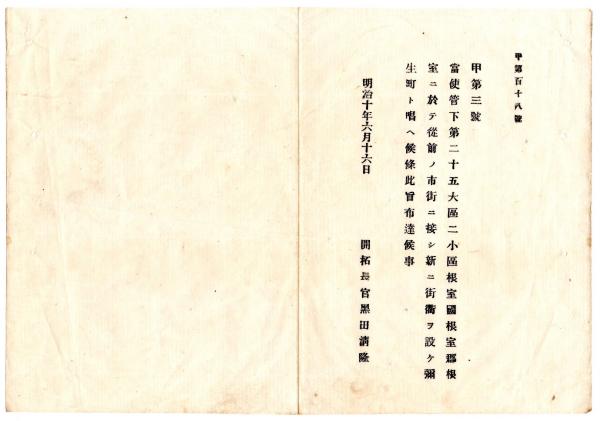 甲第百十八號
甲第三號
當使管下第二十五大區二小區根室國根室郡根
室ニ於テ從前ノ市街ニ接シ新ニ街衢ヲ設ケ彌
生町ト唱ヘ候條此旨布達候事
明治十年六月十六日
開拓長官黑田淸隆